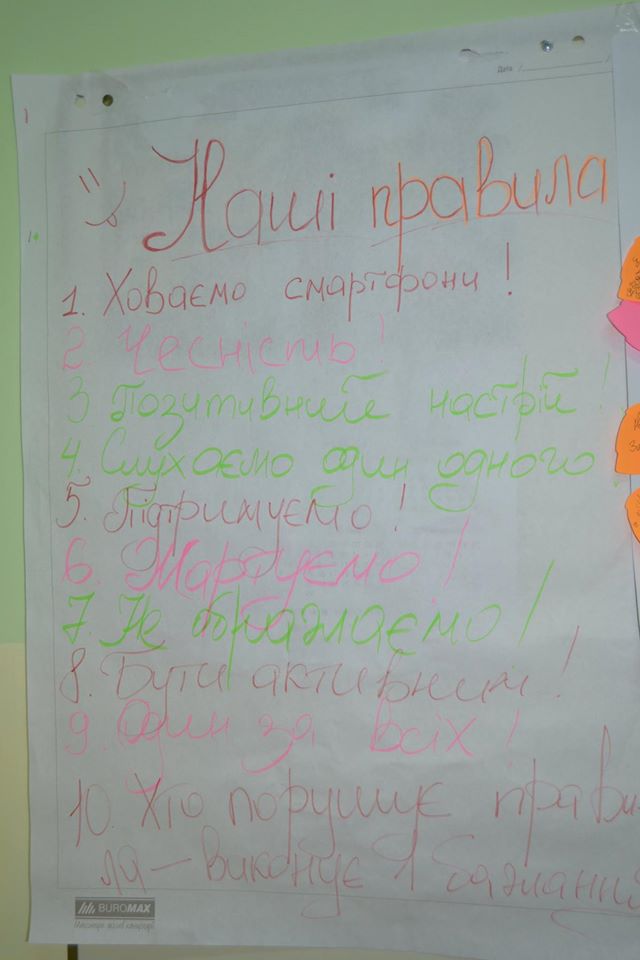 Дата
Наші правила
1. Ховаємо смартфони!
2. Чесність!
3. Позитивний настрій!
4. Слухаємо один одного
5. Підтримуємо!
6. Жартуємо!
7. Не ображаємо!
8. Бути активним!
9. Один за всіх!
10. Хто порушує прави-
ла – виконує 1 бажання
BUROMAX